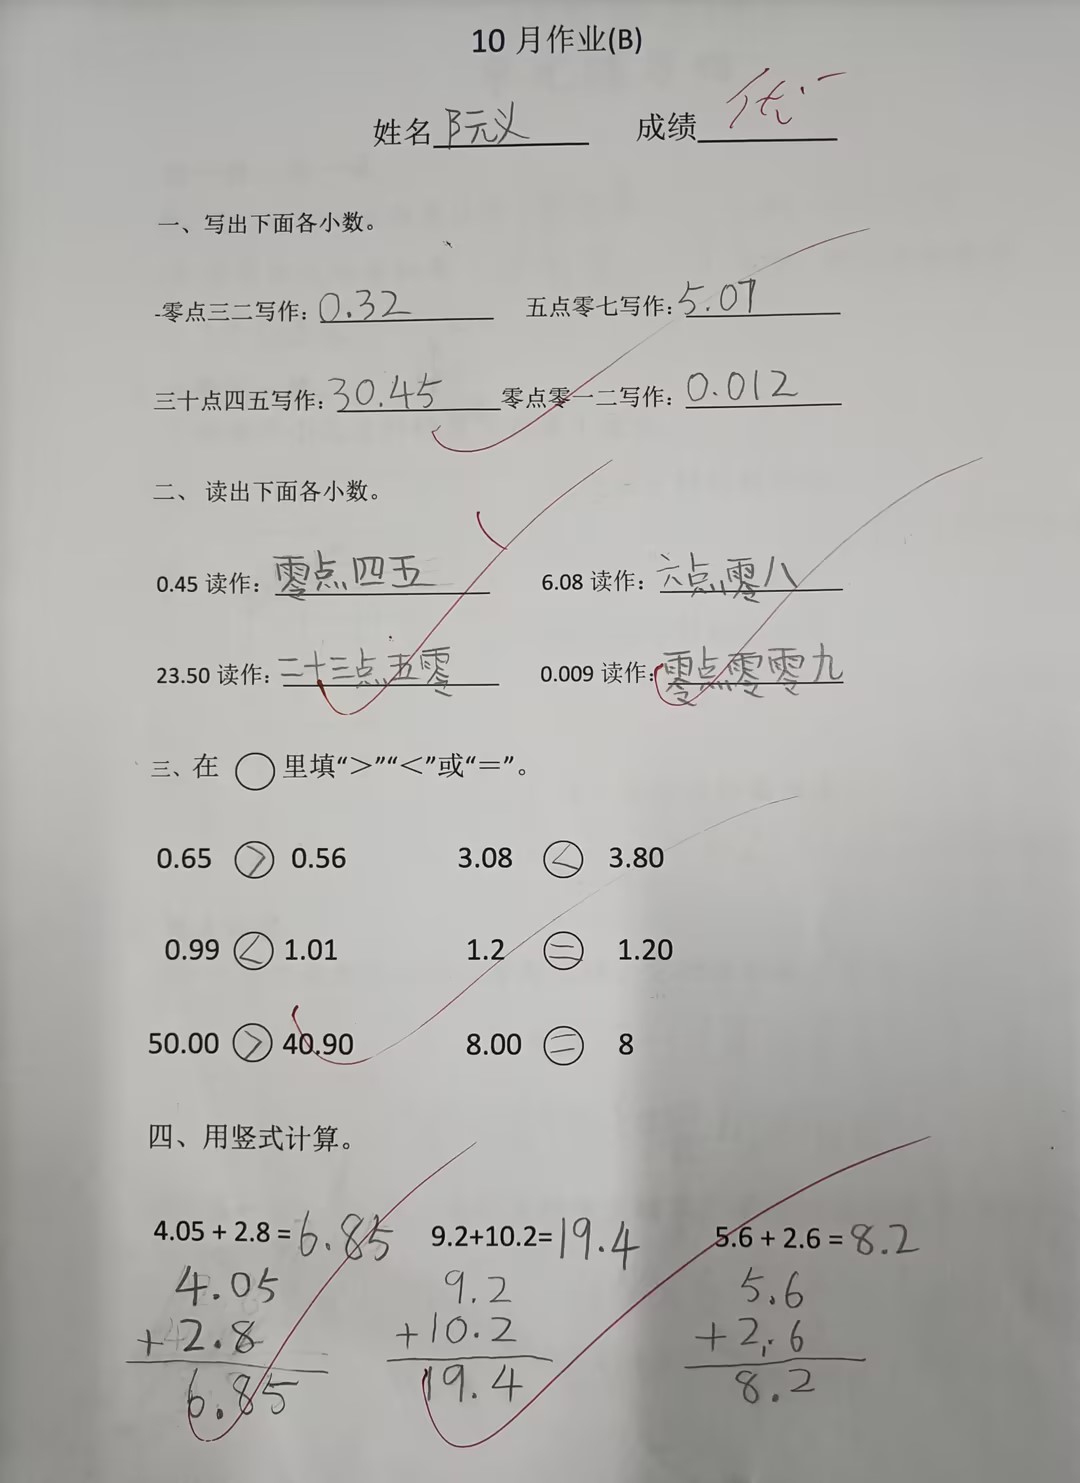 10 月作业(B)
姓名 阮义 成绩 优-
一、写出下面各小数。
-零点三二写作: 0.32 五点零七写作: 5.07
三十点四五写作: 30.45 零点零一二写作: 0.012
二、 读出下面各小数。
0.45 读作: 零点四五 6.08 读作: 六点零八
23.50 读作: 二十三点五零 0.009 读作: 零点零零九
三、在 ○ 里填“>”“<”或“=”。
0.65 > 0.56 3.08 < 3.80
0.99 < 1.01 1.2 = 1.20
50.00 > 40.90 8.00 = 8
四、用竖式计算。
4.05 + 2.8 = 6.85 9.2+10.2= 19.4 5.6 + 2.6 = 8.2
4.05 9.2 5.6
+2.8 +10.2 +2.6
6.85 19.4 8.2